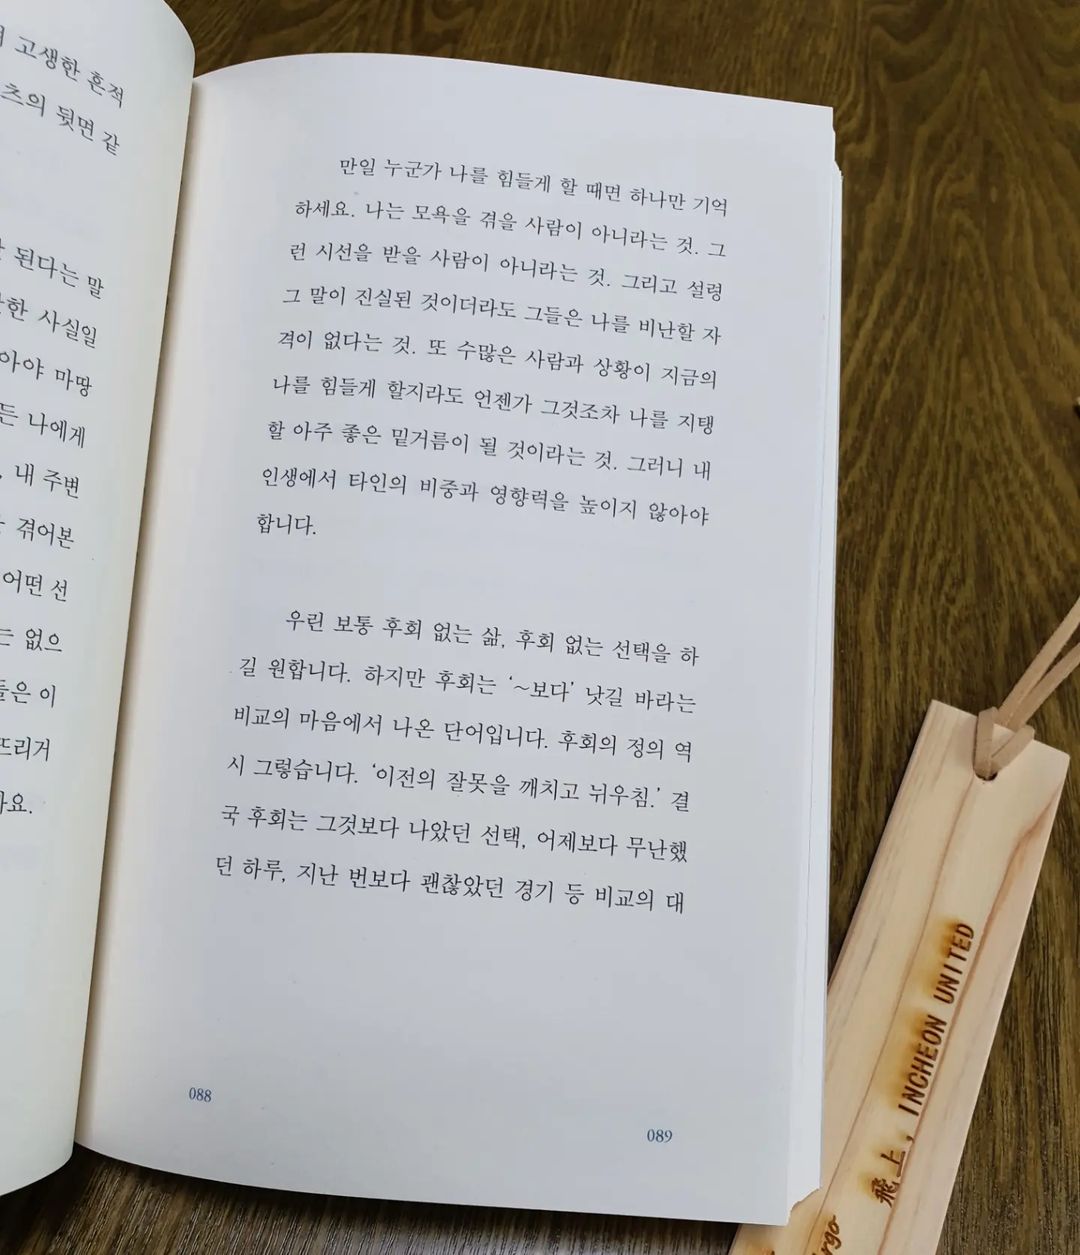 고생한 흔적
츠의 뒷면 같
된다는 말
한 사실일
아야 마땅
든 나에게
, 내 주변
겪어본
어떤 선
는 없으
들은 이
뜨리거
요.
만일 누군가 나를 힘들게 할 때면 하나만 기억
하세요. 나는 모욕을 겪을 사람이 아니라는 것. 그
런 시선을 받을 사람이 아니라는 것. 그리고 설령
그 말이 진실된 것이더라도 그들은 나를 비난할 자
격이 없다는 것. 또 수많은 사람과 상황이 지금의
나를 힘들게 할지라도 언젠가 그것조차 나를 지탱
할 아주 좋은 밑거름이 될 것이라는 것. 그러니 내
인생에서 타인의 비중과 영향력을 높이지 않아야
합니다.
우린 보통 후회 없는 삶, 후회 없는 선택을 하
길 원합니다. 하지만 후회는 ‘~보다’ 낫길 바라는
비교의 마음에서 나온 단어입니다. 후회의 정의 역
시 그렇습니다. ‘이전의 잘못을 깨치고 뉘우침.’ 결
국 후회는 그것보다 나았던 선택, 어제보다 무난했
던 하루, 지난 번보다 괜찮았던 경기 등 비교의 대
088
089
飛上, INCHEON UNITED